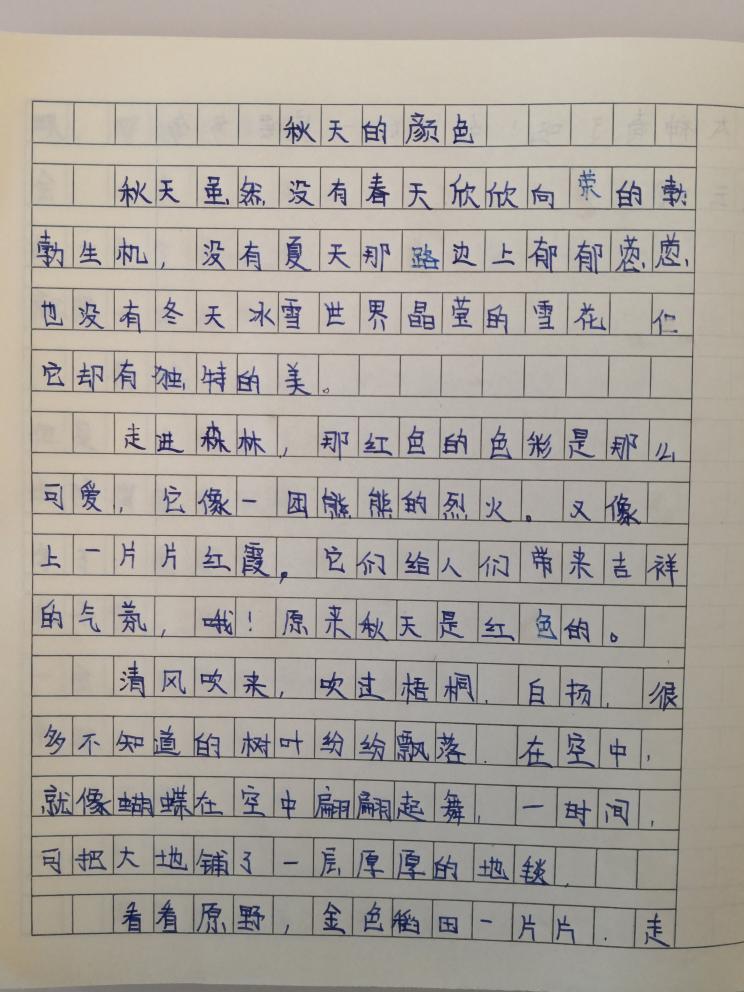 秋天的颜色
秋天虽然没有春天欣欣向荣的勃
勃生机，没有夏天那路边上郁郁葱葱，
也没有冬天冰雪世界晶莹的雪花，但
它却有独特的美。
走进森林，那红色的色彩是那么
可爱，它像一团熊熊的烈火。又像
上一片片红霞，它们给人们带来吉祥
的气氛，哦！原来秋天是红色的。
清风吹来，吹过梧桐、白扬，很
多不知道的树叶纷纷飘落，在空中，
就像蝴蝶在空中翩翩起舞，一时间，
可把大地铺了一层厚厚的地毯，
看看原野，金色稻田一片片，走